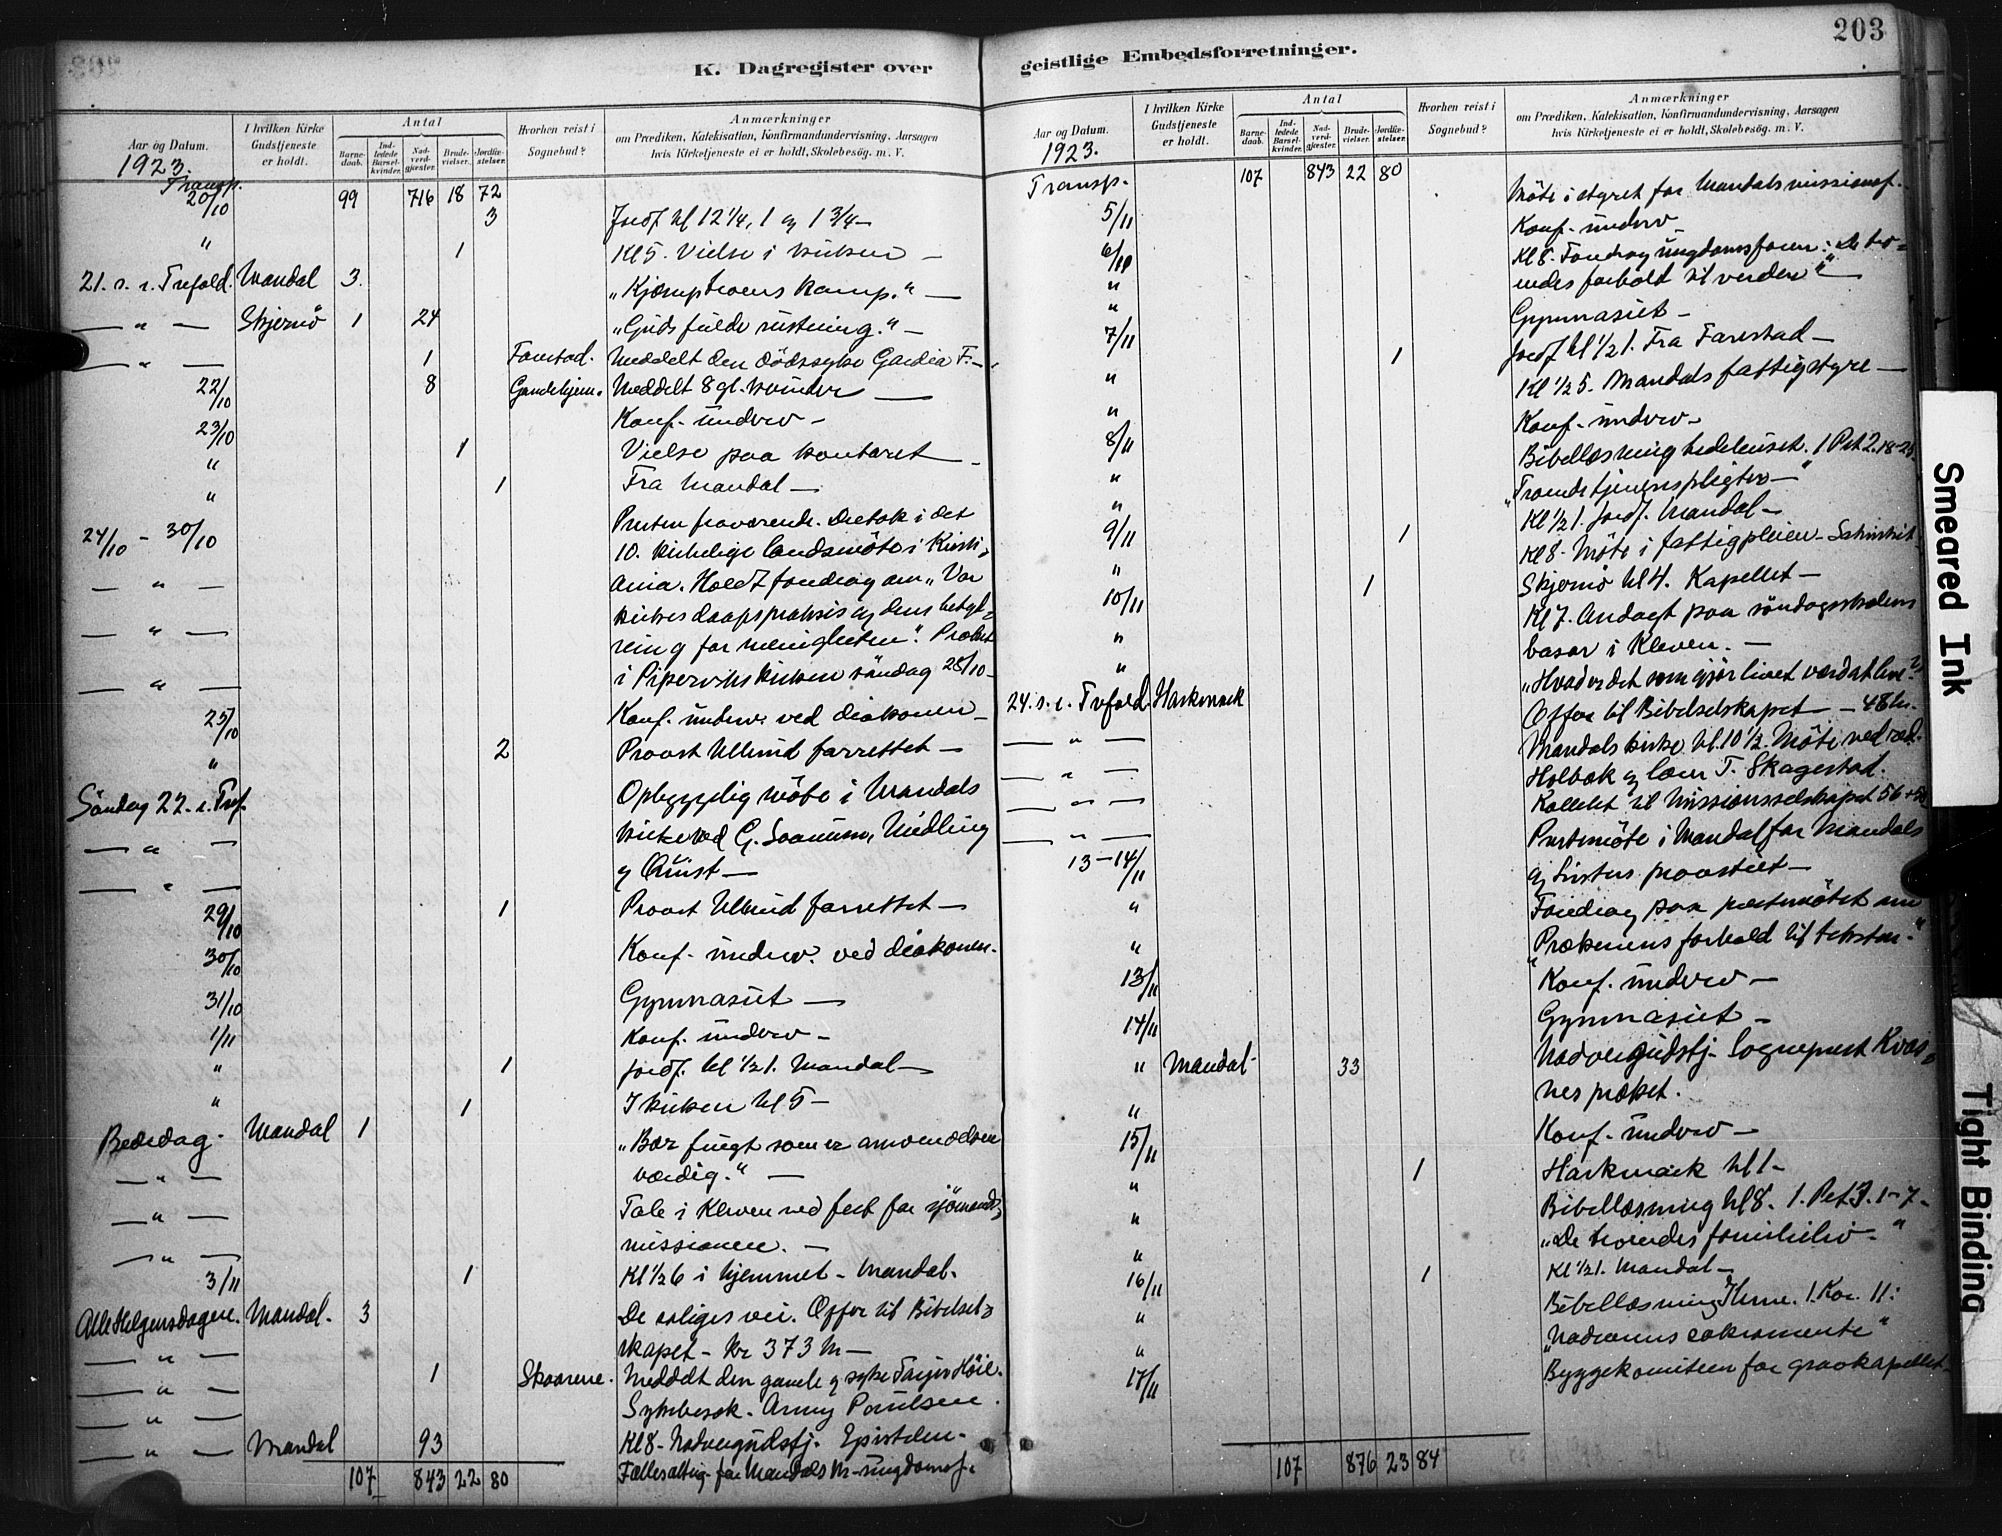 203
K. Dagregister over
Aar og Datum.
1923.
I hvilken Kirke Gudstjeneste er holdt.
Antal
Barne-daab.
Ind-ledede Barsel-kvinder.
Nad-verd-gjæster.
Brude-vielser.
Jordfæ-stelser.
Hvorhen reist i Sognebud?
Anmærkninger
om Prædiken, Katekisation, Konfirmandundervisning, Aarsagen
hvis Kirketjeneste ei er holdt, Skolebesög. m. V.
Transp. 99 716 18 72
20/10 3 Jordf kl 12 1/4, 1 og 1 3/4 —
" 1 Kl 5. Vielse i kirken —
21. s. e. Trefold. Mandal 3. „Kjæmp troens kamp." —
— " — Skjernö 1 24 „Guds fulde rustning." —
— " — 1 Farestad. Meddelt den dödssyke
22/10 8 Gamlehjem. Meddelt 8 gl. kvinder —
23/10 Konf. underv —
" 1 Vielse paa kontoret —
" 1 Fra Mandal —
24/10 - 30/10 Presten fraværende. Deltok i det
10. kirkelige landsmöte i Kristi-
— " — ania. Holdt foredrag om „Vor
kirkes daapspraksis og dens betyd-
— " — ning for menigheten". Præket
— " — i Piperviks kirken söndag 28/10 —
25/10 Konf. underv. ved diakonen —
" 2 Provst Ullerud forrettet —
Söndag 22. s. Tref. Opbyggelig möte i Mandals
— " — kirke ved G. Midling
— " — og Quist —
29/10 1 Provst Ullerud forrettet —
30/10 Konf. underv. ved diakonen.
31/10 Gymnasiet —
1/11 Konf. underv —
" 1 Jordf. kl 1/2 1. Mandal —
" 1 I kirken kl 5 —
Bededag. Mandal 1 „Bær frugt som er omvendelsen
— " — værdig." —
— " — Tale i Kleven ved fest for sjömands-
— " — missionen. —
3/11 1 Kl 1/2 6 i hjemmet - Mandal.
Alle Helgensdagen. Mandal. 3 De saliges vei. Offer til Bibelsel-
— " — skapet - kr 373
— " — 1 Skaarene. Meddelt den gamle og syke
— " — Sykebesök. Anny Paulsen.
— " — Mandal 93 Kl 8 - Nadvergudstj. Epistelen.
107 843 22 80 Fællesaften for Mandals
geistlige Embedsforretninger.
Aar og Datum.
1923.
I hvilken Kirke Gudstjeneste er holdt.
Antal
Barne-daab.
Ind-ledede Barsel-kvinder.
Nad-verd-gjæster.
Brude-vielser.
Jordfæ-stelser.
Hvorhen reist i Sognebud?
Anmærkninger
om Prædiken, Katekisation, Konfirmandundervisning, Aarsagen
hvis Kirketjeneste ei er holdt, Skolebesög. m. V.
Transp. 107 843 22 80 Möte i styret for Mandals missionsf.
5/11 Konf. underv
6/11 Kl 8. Foredrag ungdomsforen: De tro-
" endes forhold til verden" —
" Gymnasiet —
7/11 1 Jordf kl 1/2 1. Fra Farestad —
" Kl 1/2 5. Mandals fattigstyre —
" Konf. underv —
8/11 Bibellæsning bedehuset. 1 Pet 2. 18-25.
" „Troende tjeneres pligter —"
" Kl 1/2 1. Jordf. Mandal —
9/11 1 Kl 8. Möte i fattigpleien -
" 1 Skjernö kl 4. Kapellet —
10/11 Kl 7. Andagt paa söndagsskolens
" basar i Kleven. —
" „Hvad er det som gjör livet værd at leve?"
24. s. e. Trefold. Harkmark Offer til Bibelselskapet — 48 kr.
— " — Mandals kirke kl. 10 1/2. Möte ved red.
— " — Holbæk og lærer T. Skagestad.
— " — Kollekt til Missionsselskapet
— " — Prestemöte i Mandal for Mandals
13-14/11 og Listers provstier —
" Foredrag paa prestemötet om
" „Prækenens forhold til teksten."
13/11 Konf. underv —
14/11 Gymnasiet —
" Mandal 33 Nadvergudstj. Sogneprest Kvas-
" nes præket.
15/11 Konf. underv —
" 1 Harkmark kl 1 —
" Bibellæsning kl 8. 1. Pet 3. 1-7.
" „De troendes familieliv —"
16/11 1 Kl 1/2 1. Mandal —
" Bibellæsning Ihme. 1. Kor. 11:
" „Nadverens sakramente"
17/11 Byggekomiteen for gravkapellet —
107 876 23 84
Smeared Ink
Tight Binding